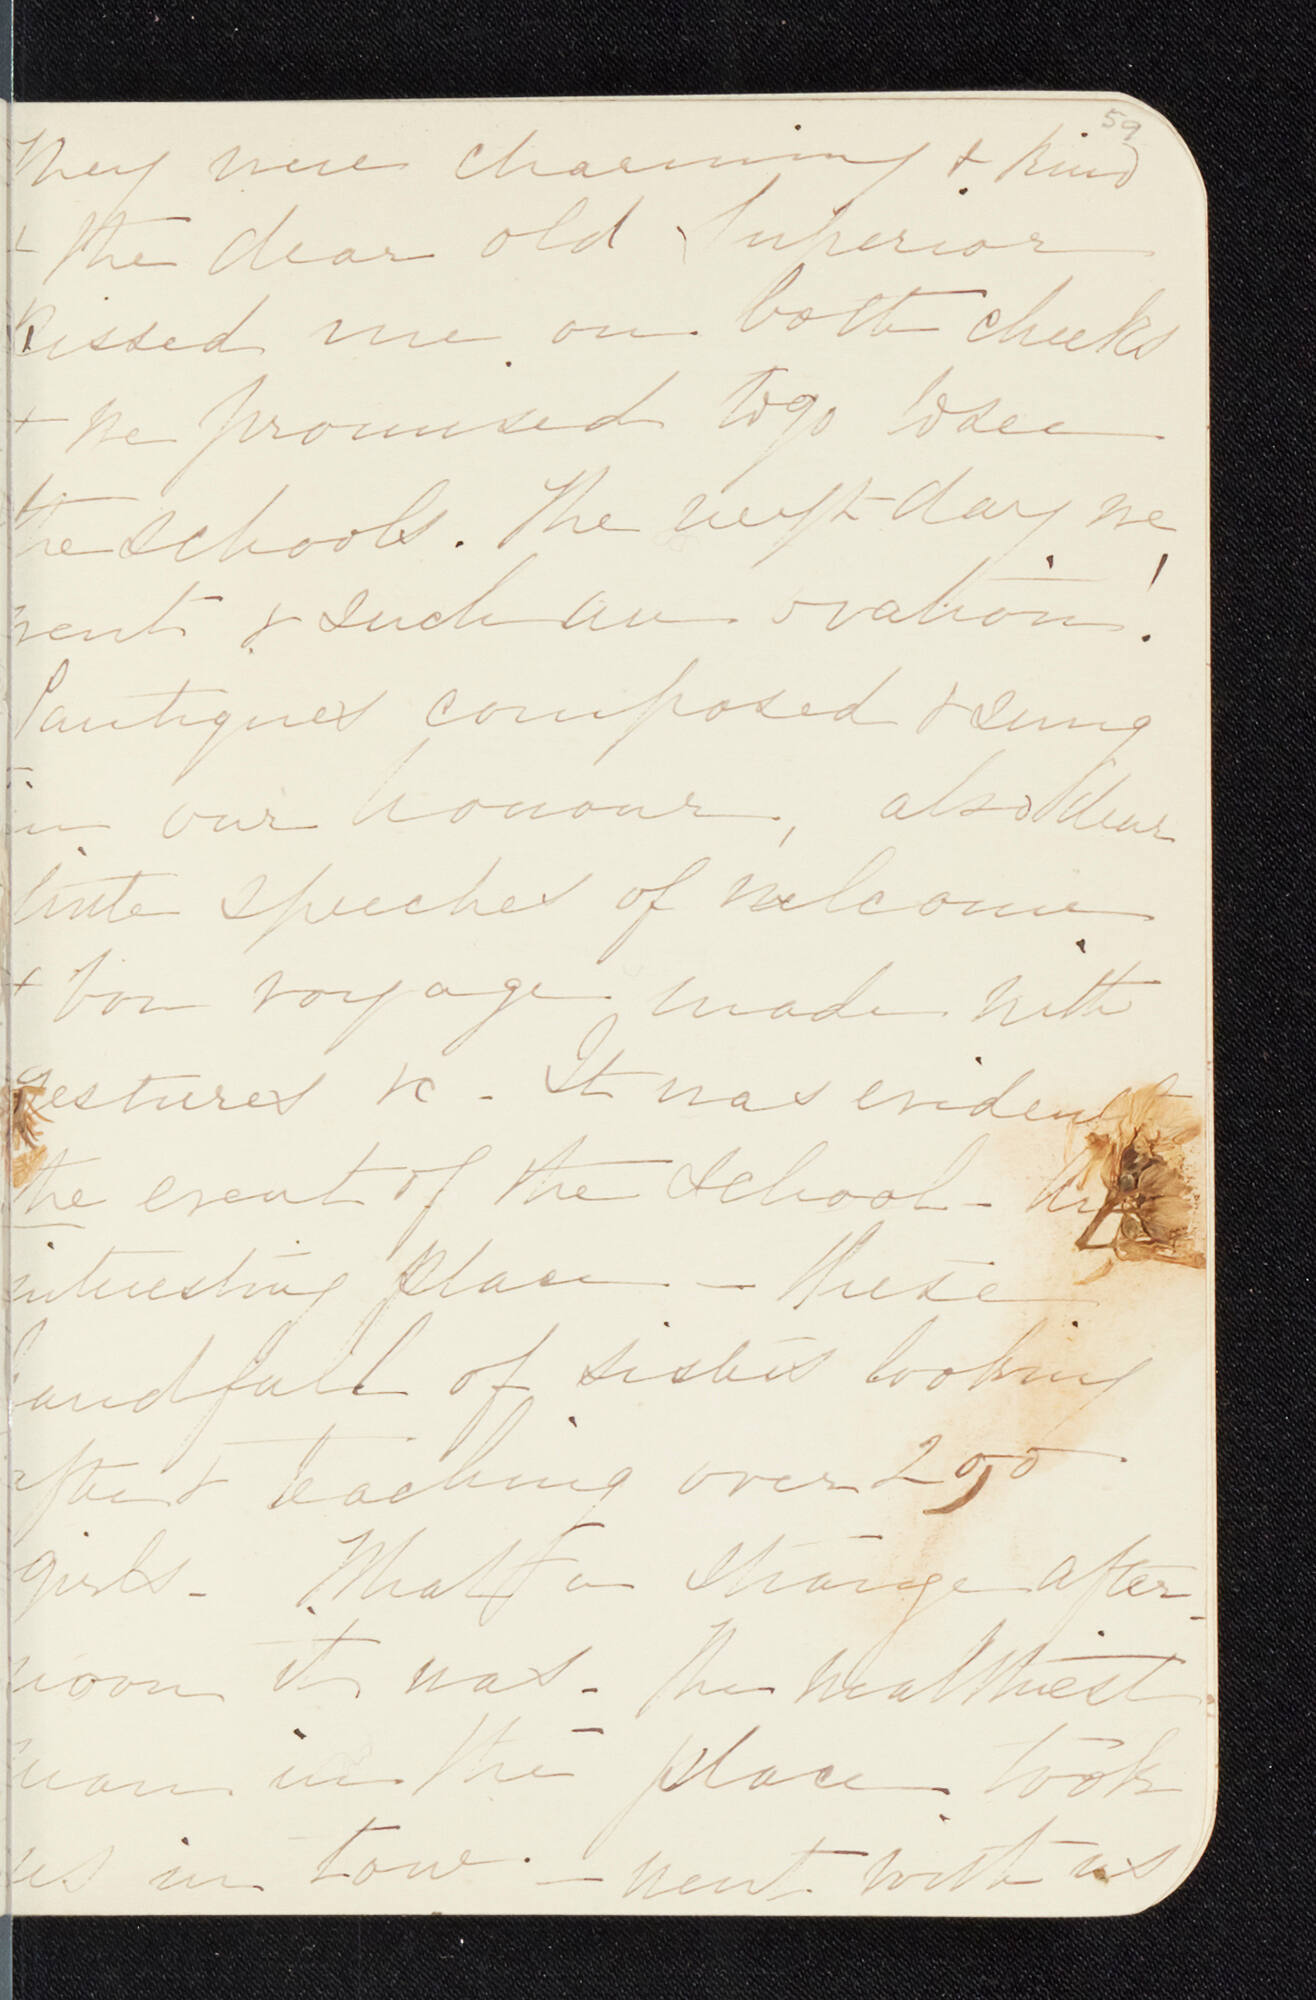 59
They were charming & kind
& the dear old Superior
kissed me on both cheeks
& we promised to go to see
the schools. The next day we
went & such an ovation!
Cantiques composed & sung
in our honour, also dear
little speeches of welcome
& bon voyage made with
gestures &c - It was evidently
the event of the school - An
interesting place - these
handfull of sisters looking
after & teaching over 250
girls - What a strange after-
noon it was - The wealthiest
man in the place took
us in tow - went with us